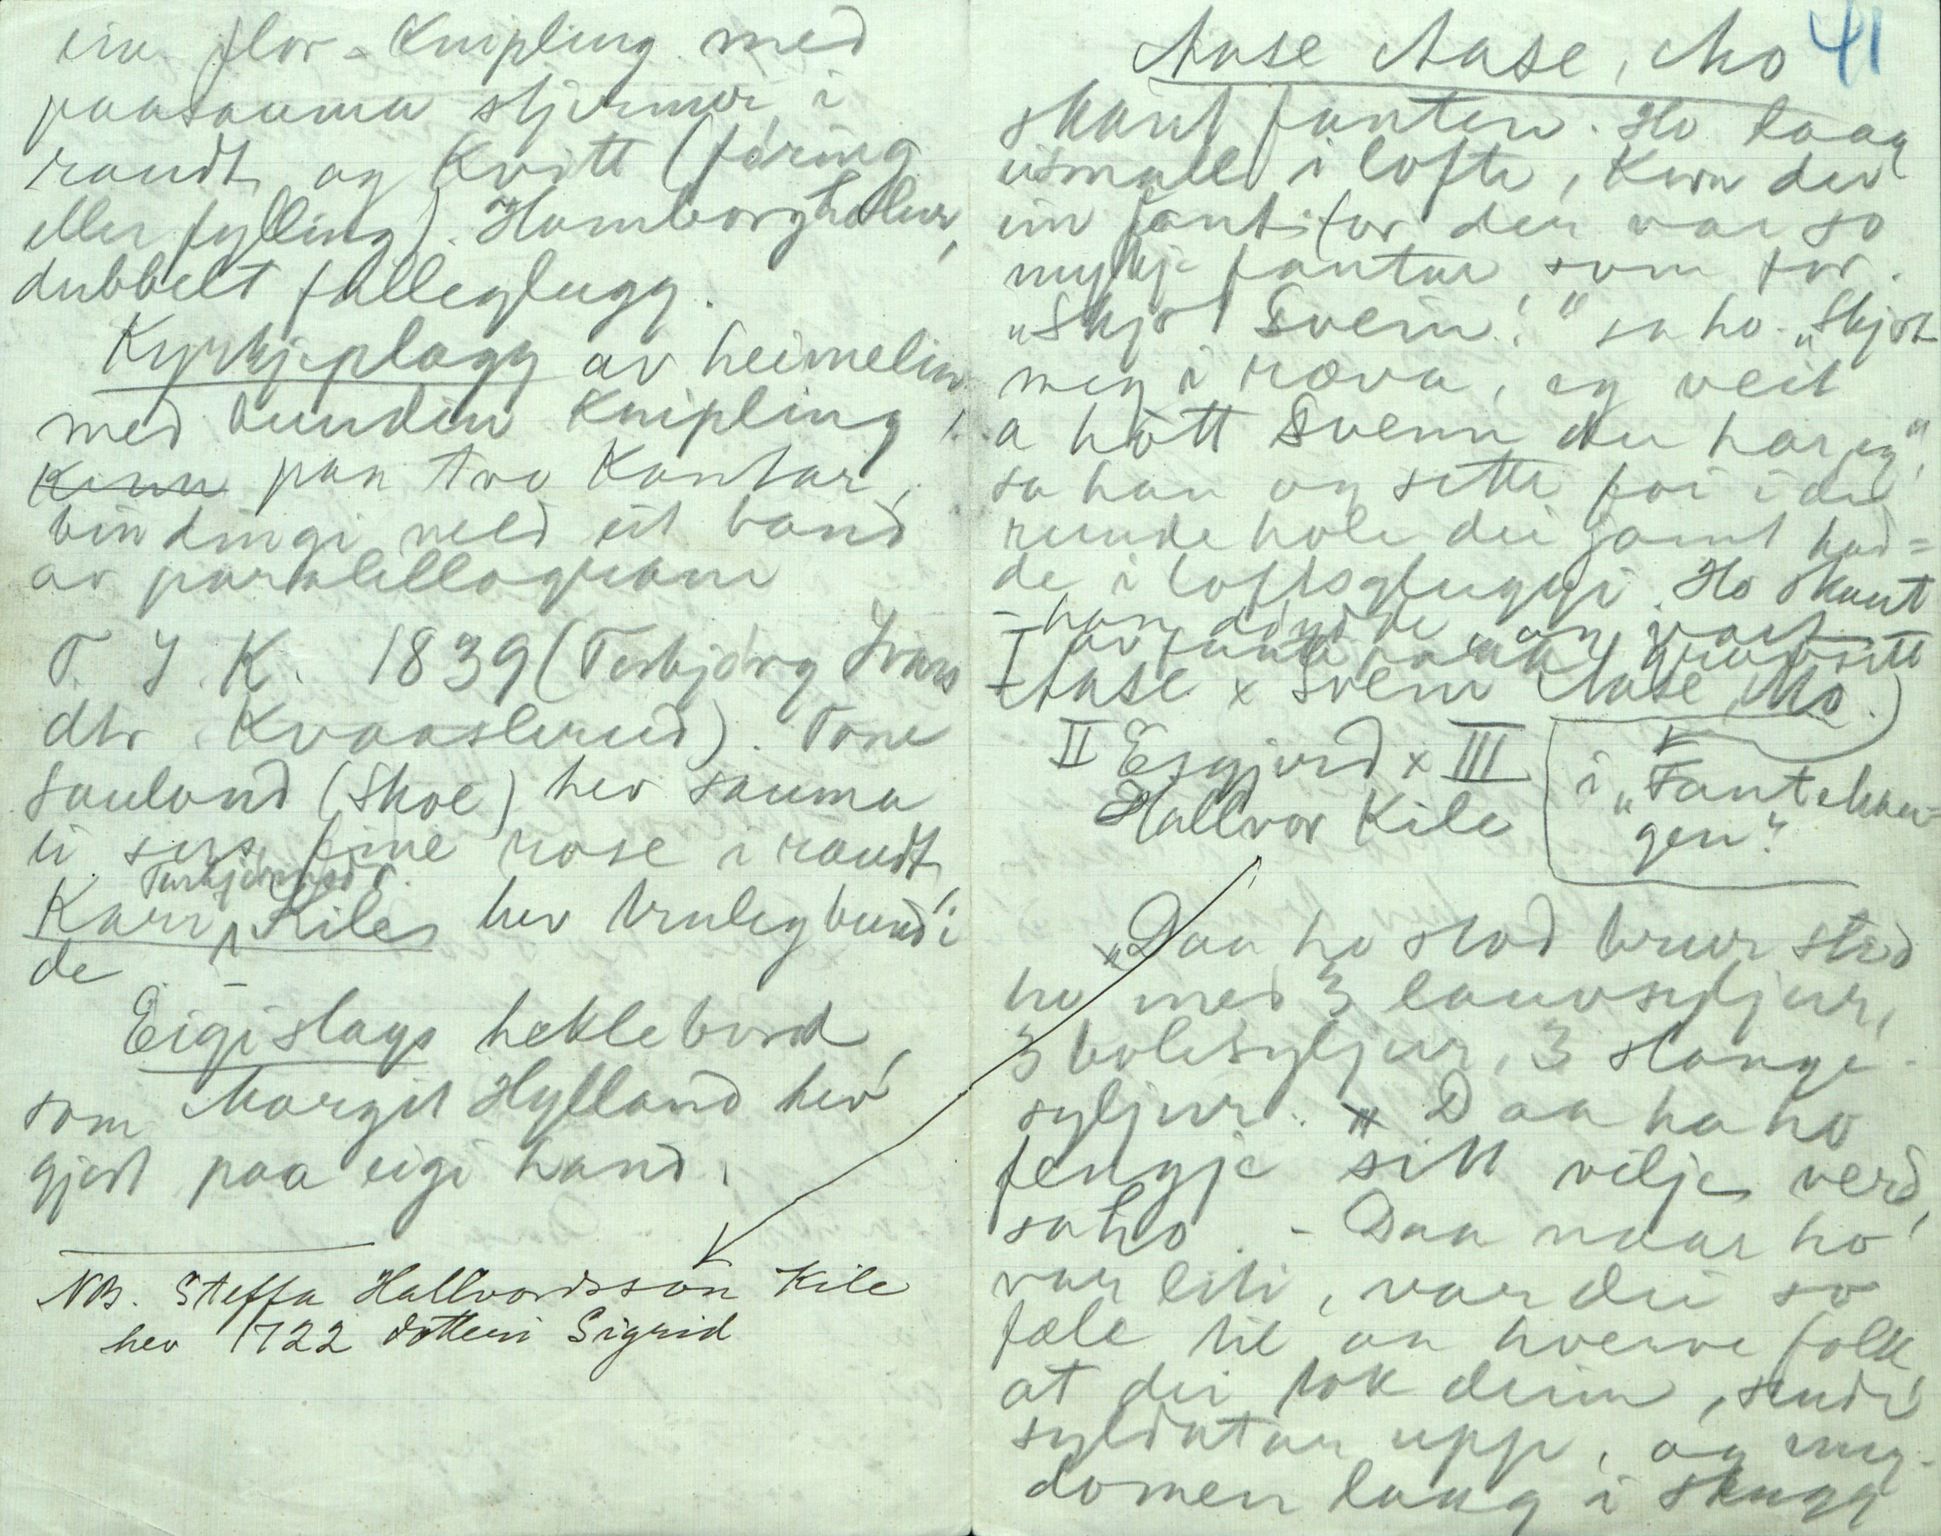 ein flor-Knipling med
paasauma stjernur i
raudt og Kvitt (fóring
eller fylling). Hamborgholur,
dubbelt falleglugg.
Kyrkjeplagg av heimelin
med bunden Knipling
paa tvo Kantar,
bindingi med eit band
av paralellogram
T. I. K. 1839 (Torbjórg Ivars
dtr Kvaaslerud). Tone
Sauland (Skoe) hev sauma
ei fine rose i raudt,
Torbjórnsd.
Kari Kiles hev truleg bundi
de
Eigislags heklebord,
som Margit Hylland hev
gjort paa eigi hand.
NB. Steffa Hallvordsson Kile
hev 1722 dotteri Sigrid
Aase Aase, Mo 41
skaut fanten. Ho laag
eismall i lofte, Kom der
ein fant, for der var so
mykje fantar som for.
"Skjot Svein!" sa ho. "Skjot
meg i ræva, eg veit
a hòtt Svein du har eg",
sa han og sette foi i de
runde hole dei jamt had=
de i loftsgluggji. Ho skaut
- han dóydde og vart
I av fantefólgje gravsett
Aase x Svein Aase, Mo.)
II Eggjerd x III
Hallvor Kile
i "Fantehau=
gen".
"Daa ho stod brur stod
ho med 3 lauvsyljur,
3 bolesyljur, 3 stange-
syljur. "Daa ha ho
fengje sitt vilje verd,
sa ho. - Daa naar ho
var liti, var dei so
fæle til aa hverve folk
at dei tok deim, sende
syldatar upp, og ung-
domen laag i skogg